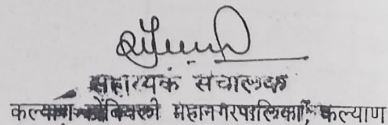 सहाय्यक संचालक
कल्याण डोंबिवली महानगरपालिका कल्याण